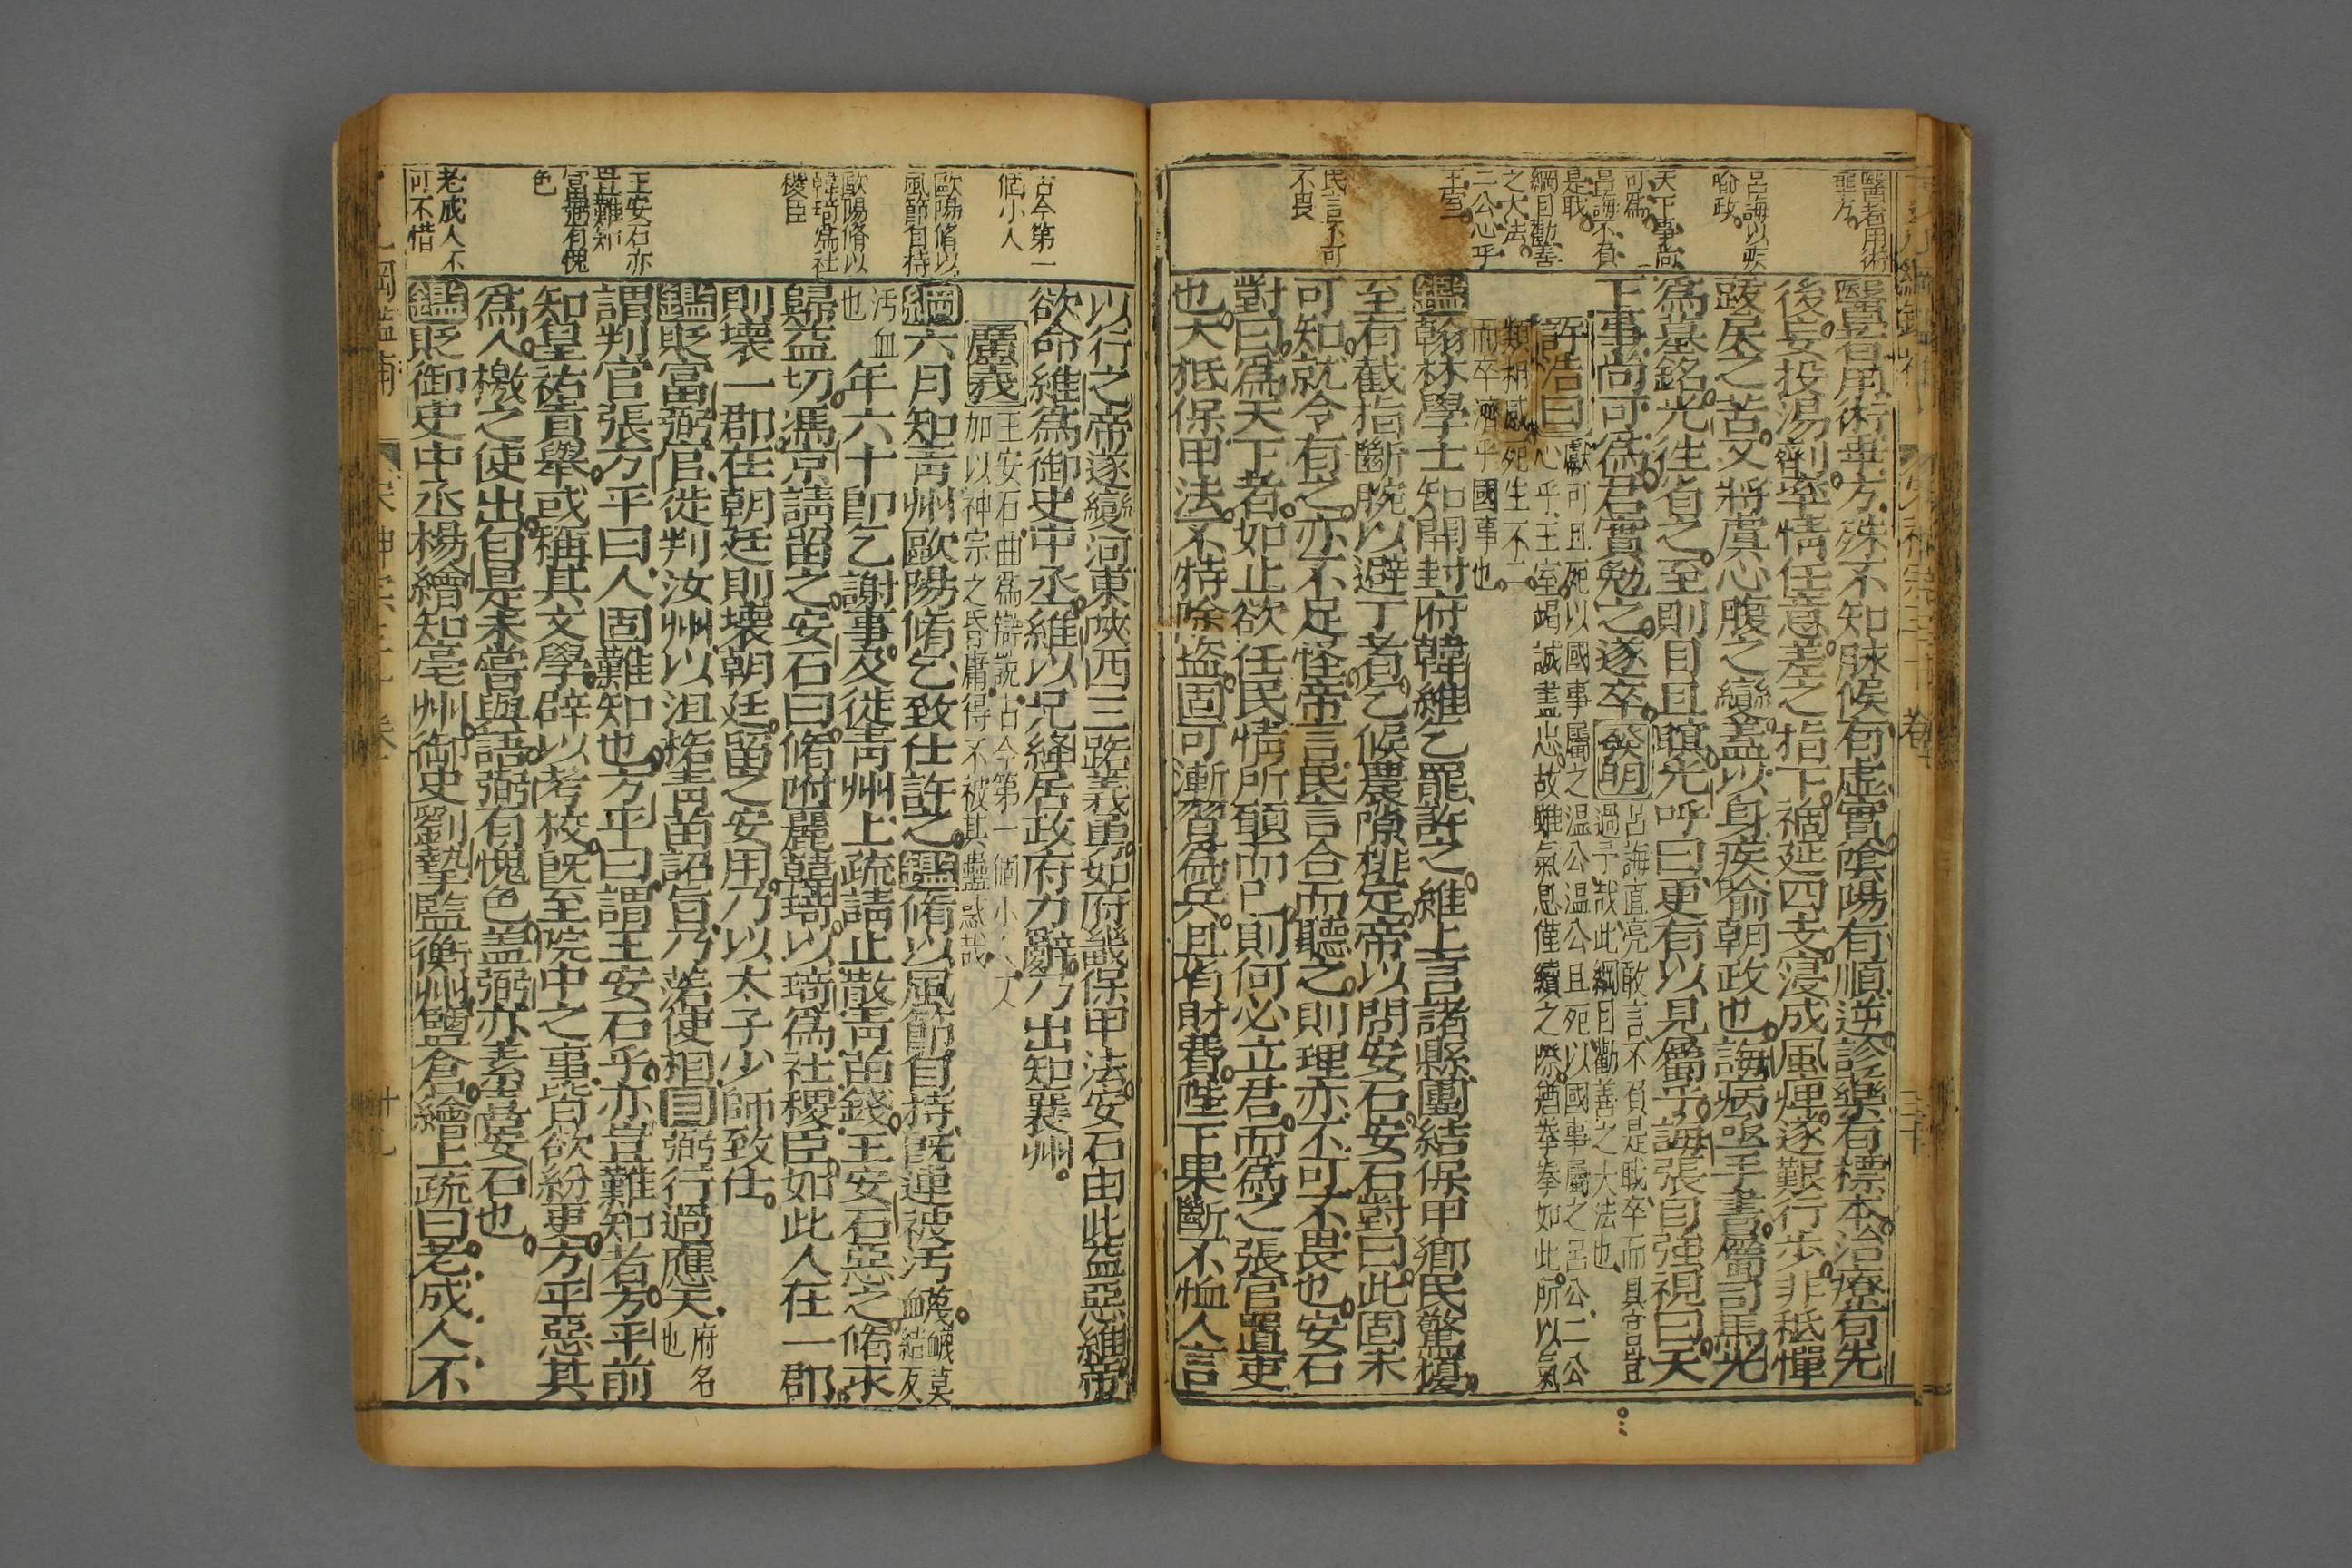 醫者用術
乖方
呂誨以疾
喻政
天下事尚
可為
呂誨不負
是職
綱目勸善
之大法
二公心乎
王室
民言不可
不畏
醫者用術乖方殊不知脉候有虛實陰陽有順逆診察有標本治療有先
後妄投湯劑率情任意差之指下禍延四支寖成風痺遂艱行步非秪憚
䟦盭之苦又將虞心腹之變蓋以身疾喻朝政也誨病亟手書屬司馬光
為墓銘光往省之至則目且瞑光呼曰更有以見屬乎誨張目強視曰天
下事尚可為君實勉之遂卒發明呂誨直亮敢言不負是職卒而具官豈
過予哉此綱目勸善之大法也
許浩曰獻可且死以國事屬之温公温公且死以國事屬之呂公二公
心乎王室竭誠盡忠故雖氣息僅續之際猶拳拳如此所以氣
類相感死生不二
而卒濟乎國事也
鑑翰林學士知開封府韓維乞罷許之維上言諸縣團結保甲鄉民驚擾
至有截指斷腕以避丁者乞候農隙排定帝以問安石安石對曰此固未
可知就令有之亦不足怪帝言民言合而聽之則理亦不可不畏也安石
對曰為天下者如止欲任民情所願而已則何必立君而為之張官置吏
也大抵保甲法不特除盜固可漸習為兵且省財費陛下果斷不恤人言
古今第一
個小人
歐陽脩以
風節自持
歐陽脩以
韓琦為社
稷臣
王安石亦
豈難知
富弼有愧
色
老成人不
可不惜
以行之帝遂變河東陜西三路義勇如府畿保甲法安石由此益惡維帝
欲命維為御史中丞維以兄絳居政府力辭乃出知襄州
廣義王安石曲為辯說古今第一個小人
加以神宗之昏庸得不被其蠱惑哉
綱六月知青州歐陽脩乞致仕許之鑑脩以風節自持既連被汚衊
汚血也年六十即乞謝事及徙青州上疏請止散青苗錢王安石惡之脩求
歸益切馮京請留之安石曰脩附麗韓琦以琦為社稷臣如此人在一郡
則壞一郡在朝廷則壞朝廷留之安用乃以太子少師致仕
鑑貶富弼官徙判汝州以沮格青苗詔旨乃落使相目弼行過應天府名也
謂判官張方平曰人固難知也方平曰謂王安石乎亦豈難知者方平前
知皇祐貢舉或稱其文學辟以考校旣至院中之事皆欲紛更方平惡其
為人檄之使出自是未嘗與語弼有愧色蓋弼亦素喜安石也
鑑貶御史中丞楊繪知亳州御史劉摯監衡州鹽倉繪上疏曰老成人不